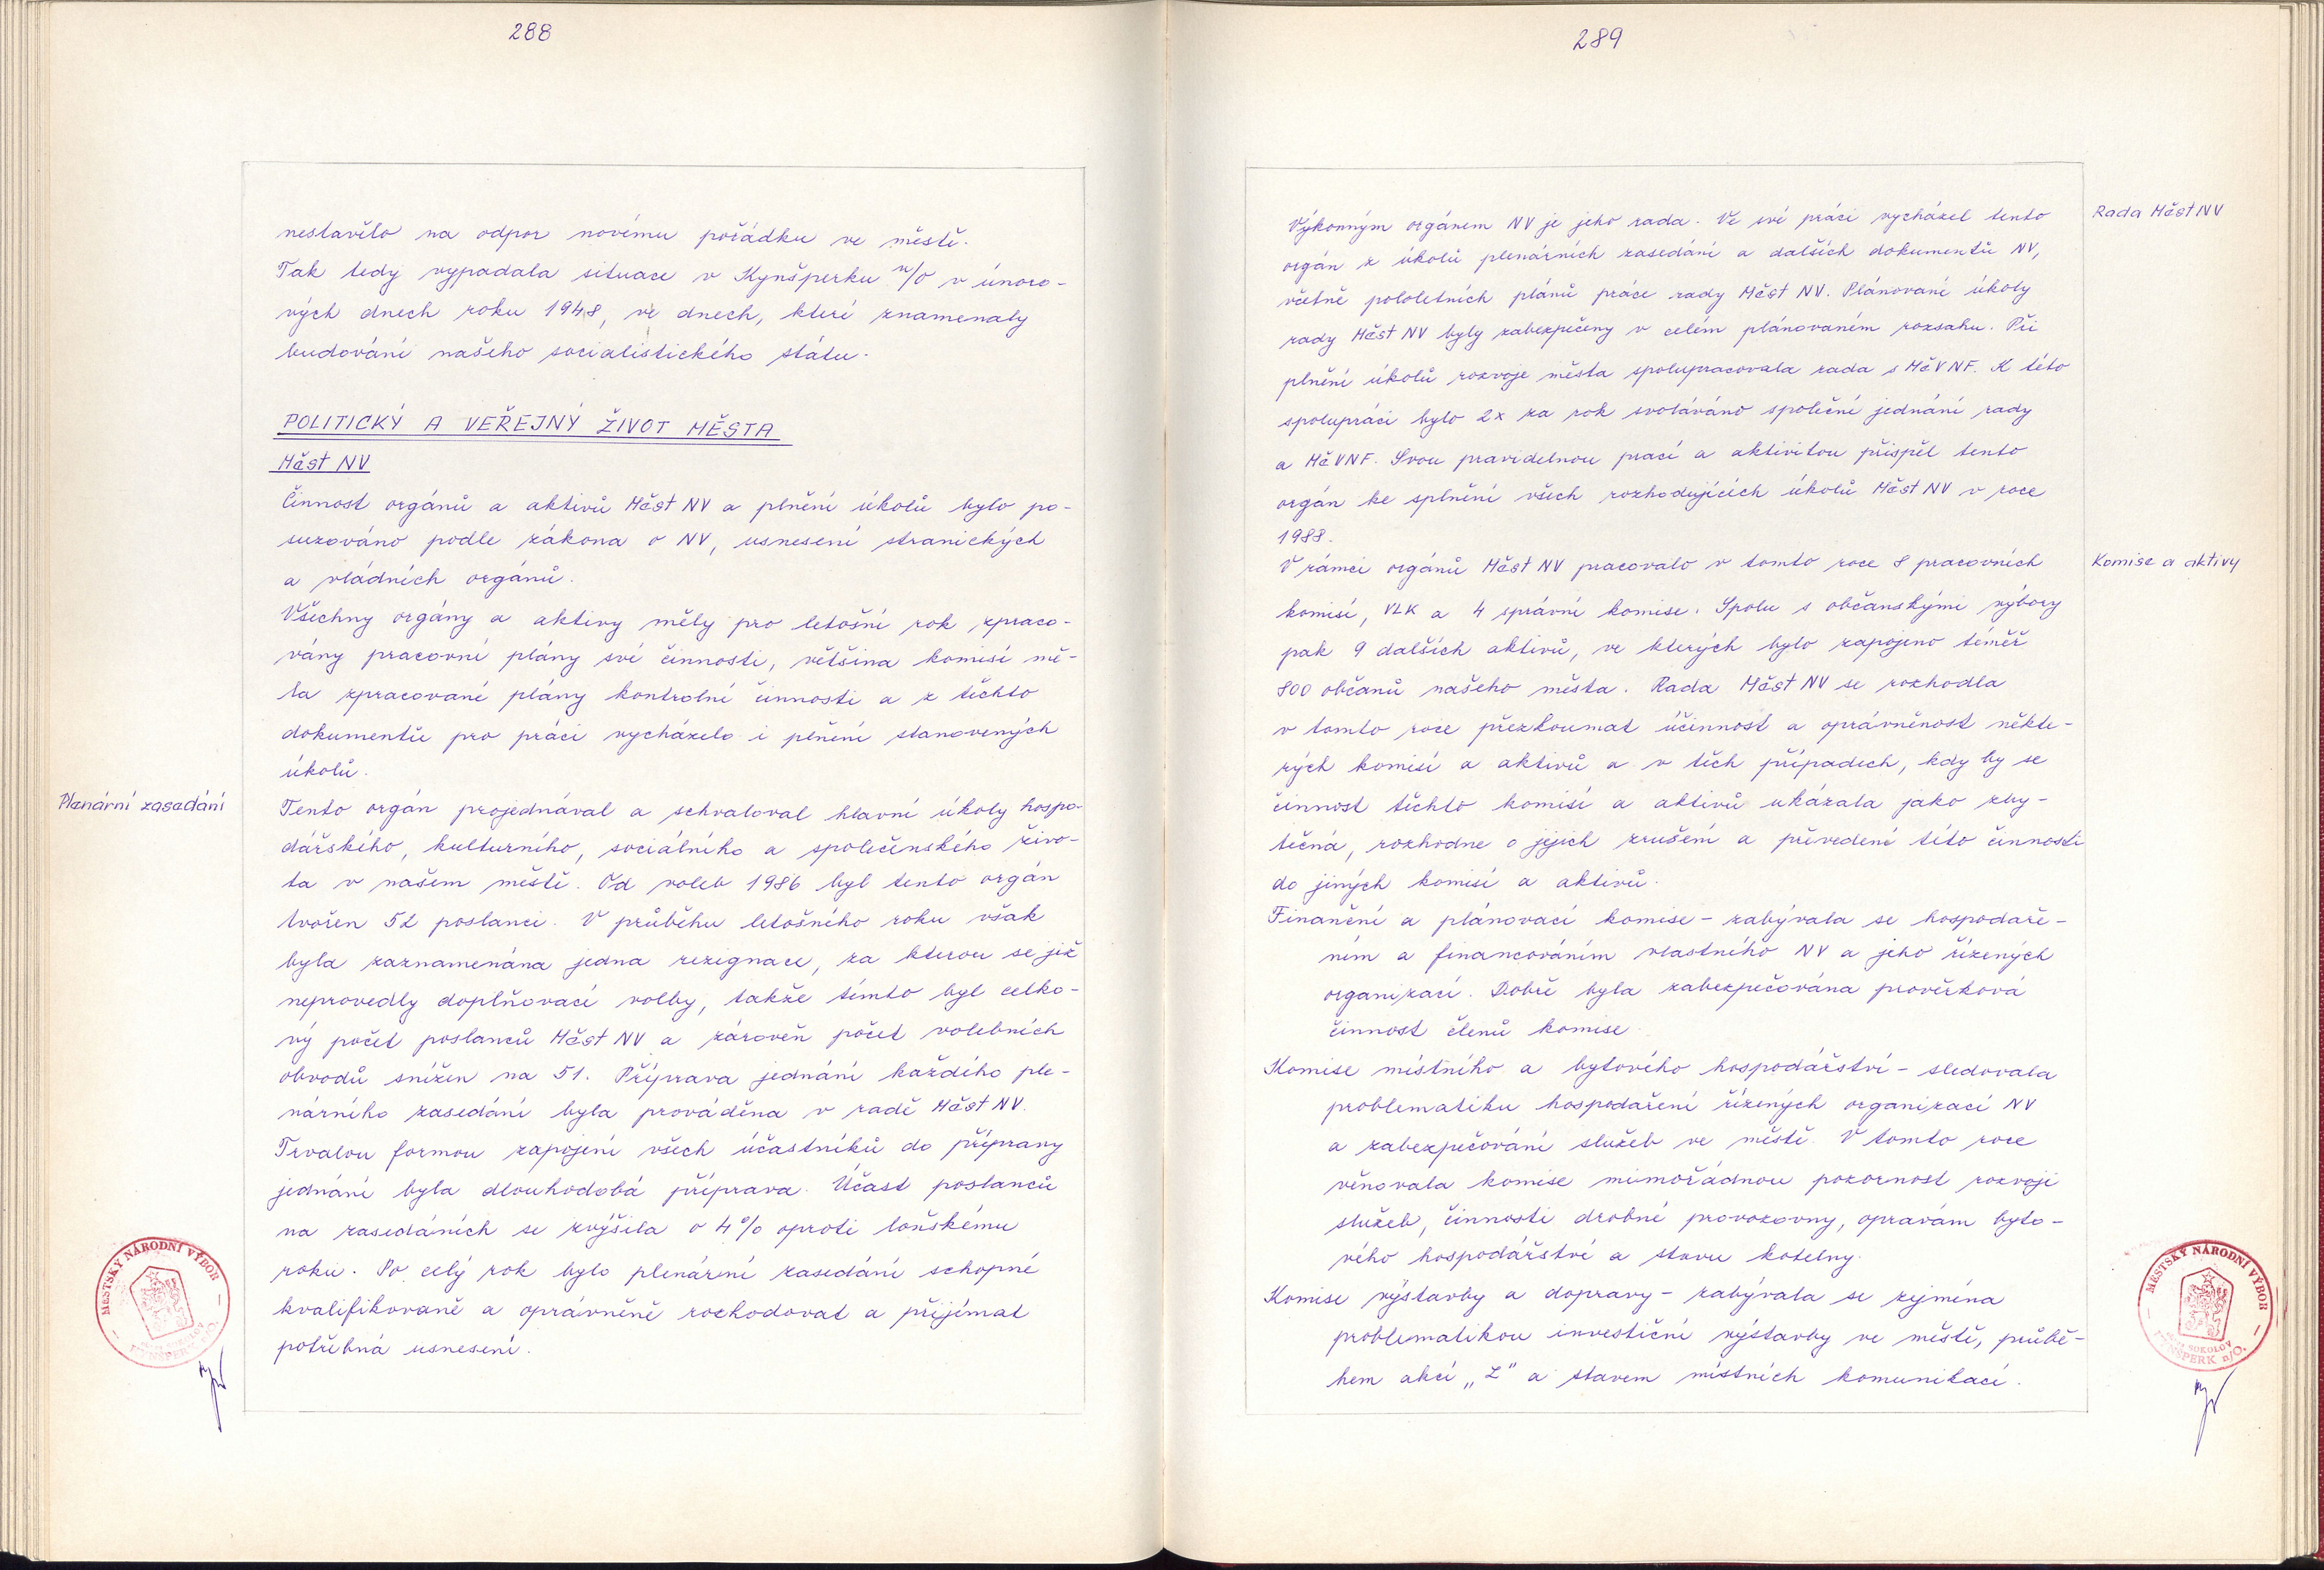 288
nestavělo na odpor novému pořádku ve městě.
Tak tedy vypadala situace v Kynšperku n/O v únoro-
vých dnech roku 1948, ve dnech, které znamenaly
budování našeho socialistického státu.
POLITICKÝ A VEŘEJNÝ ŽIVOT MĚSTA
Měst NV
Činnost orgánů a aktivů Měst NV a plnění úkolů bylo po-
suzováno podle zákona o NV, usnesení stranických
a vládních orgánů.
Všechny orgány a aktivy měly pro letošní rok zpraco-
vány pracovní plány své činnosti, většina komisí mě-
la zpracované plány kontrolní činnosti a z těchto
dokumentů pro práci vycházelo i plnění stanovených
úkolů.
Plenární zasedání
Tento orgán projednával a schvaloval hlavní úkoly hospo-
dářského, kulturního, sociálního a společenského živo-
ta v našem městě. Od voleb 1986 byl tento orgán
tvořen 52 poslanci. V průběhu letošního roku však
byla zaznamenána jedna rezignace, za kterou se již
neprovedly doplňovací volby, takže tímto byl celko-
vý počet poslanců Měst NV a zároveň počet volebních
obvodů snížen na 51. Příprava jednání každého ple-
nárního zasedání byla prováděna v radě Měst NV.
Trvalou formou zapojení všech účastníků do přípravy
jednání byla dlouhodobá příprava. Účast poslanců
na zasedáních se zvýšila o 4% oproti loňskému
roku. Po celý rok bylo plenární zasedání schopné
kvalifikovaně a oprávněně rozhodovat a přijímat
potřebná usnesení.
MĚSTSKÝ NÁRODNÍ VÝBOR
289
Rada Měst NV
Výkonným orgánem NV je jeho rada. Ve své práci vycházel tento
orgán z úkolů plenárních zasedání a dalších dokumentů NV,
včetně pololetních plánů práce rady Měst NV. Plánované úkoly
rady Měst NV byly zabezpečeny v celém plánovaném rozsahu. Při
plnění úkolů rozvoje města spolupracovala rada s MěVNF. K této
spolupráci bylo 2x za rok svoláváno společné jednání rady
a MěVNF. Svou pravidelnou prací a aktivitou přispěl tento
orgán ke splnění všech rozhodujících úkolů Měst NV v roce
1988.
Komise a aktivy
V rámci orgánů Měst NV pracovalo v tomto roce 8 pracovních
komisí, VLK a 4 správní komise. Spolu s občanskými výbory
pak 9 dalších aktivů, ve kterých bylo zapojeno téměř
800 občanů našeho města. Rada Měst NV se rozhodla
v tomto roce přezkoumat účinnost a oprávněnost někte-
rých komisí a aktivů a v těch případech, kdy by se
činnost těchto komisí a aktivů ukázala jako zby-
tečná, rozhodne o jejich zrušení a převedení této činnosti
do jiných komisí a aktivů.
Finanční a plánovací komise - zabývala se hospodaře-
ním a financováním vlastního NV a jeho řízených
organizací. Dobře byla zabezpečována prověrková
činnost členů komise.
Komise místního a bytového hospodářství - sledovala
problematiku hospodaření řízených organizací NV
a zabezpečování služeb ve městě. V tomto roce
věnovala komise mimořádnou pozornost rozvoji
služeb, činnosti drobné provozovny, opravám byto-
vého hospodářství a stavu kotelny.
Komise výstavby a dopravy - zabývala se zejména
problematikou investiční výstavby ve městě, průbě-
hem akcí „Z" a stavem místních komunikací.
MĚSTSKÝ NÁRODNÍ VÝBOR
SOKOLOV
KYNŠPERK n/O.